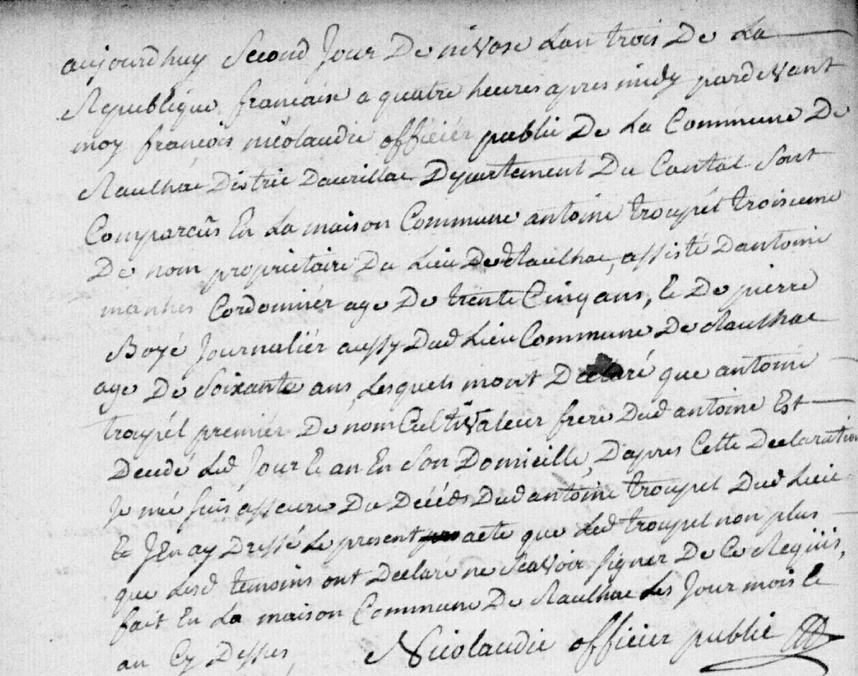 aujourdhuy Second Jour De nivose Lan trois De La
Republique francaise a quatre heures apres midy pardevant
moy francois nicolaudie officier public De La Commune De
Raulhac District Daurillac Departement Du Cantal Sont
Comparus En La maison Commune antoine troupel troisieme
De nom proprietaire Du Lieu De Raulhac, assisté Dantoine
manhes Cordonnier age De trente Cinq ans, & De pierre
Boyé Journalier aussy Dud Lieu Commune De Raulhac
age De Soixante ans, Lesquels mont Declaré que antoine
troupél premier De nom Cultivateur frere Dud antoine Est
Decedé Led Jour & an En Son Domicille, D'apres Cette Declaration
Je me suis assure Du Décéds Dud antoine troupel Dud Lieu
& JEn ay Dressé Le present acte que Led troupel non plus
que Lesd temoins ont Declare ne Scavoir Signer De Ce Requis,
fait En La maison Commune De Raulhac Les Jour mois &
an Cy Dessus,
Nicolaudie officier public